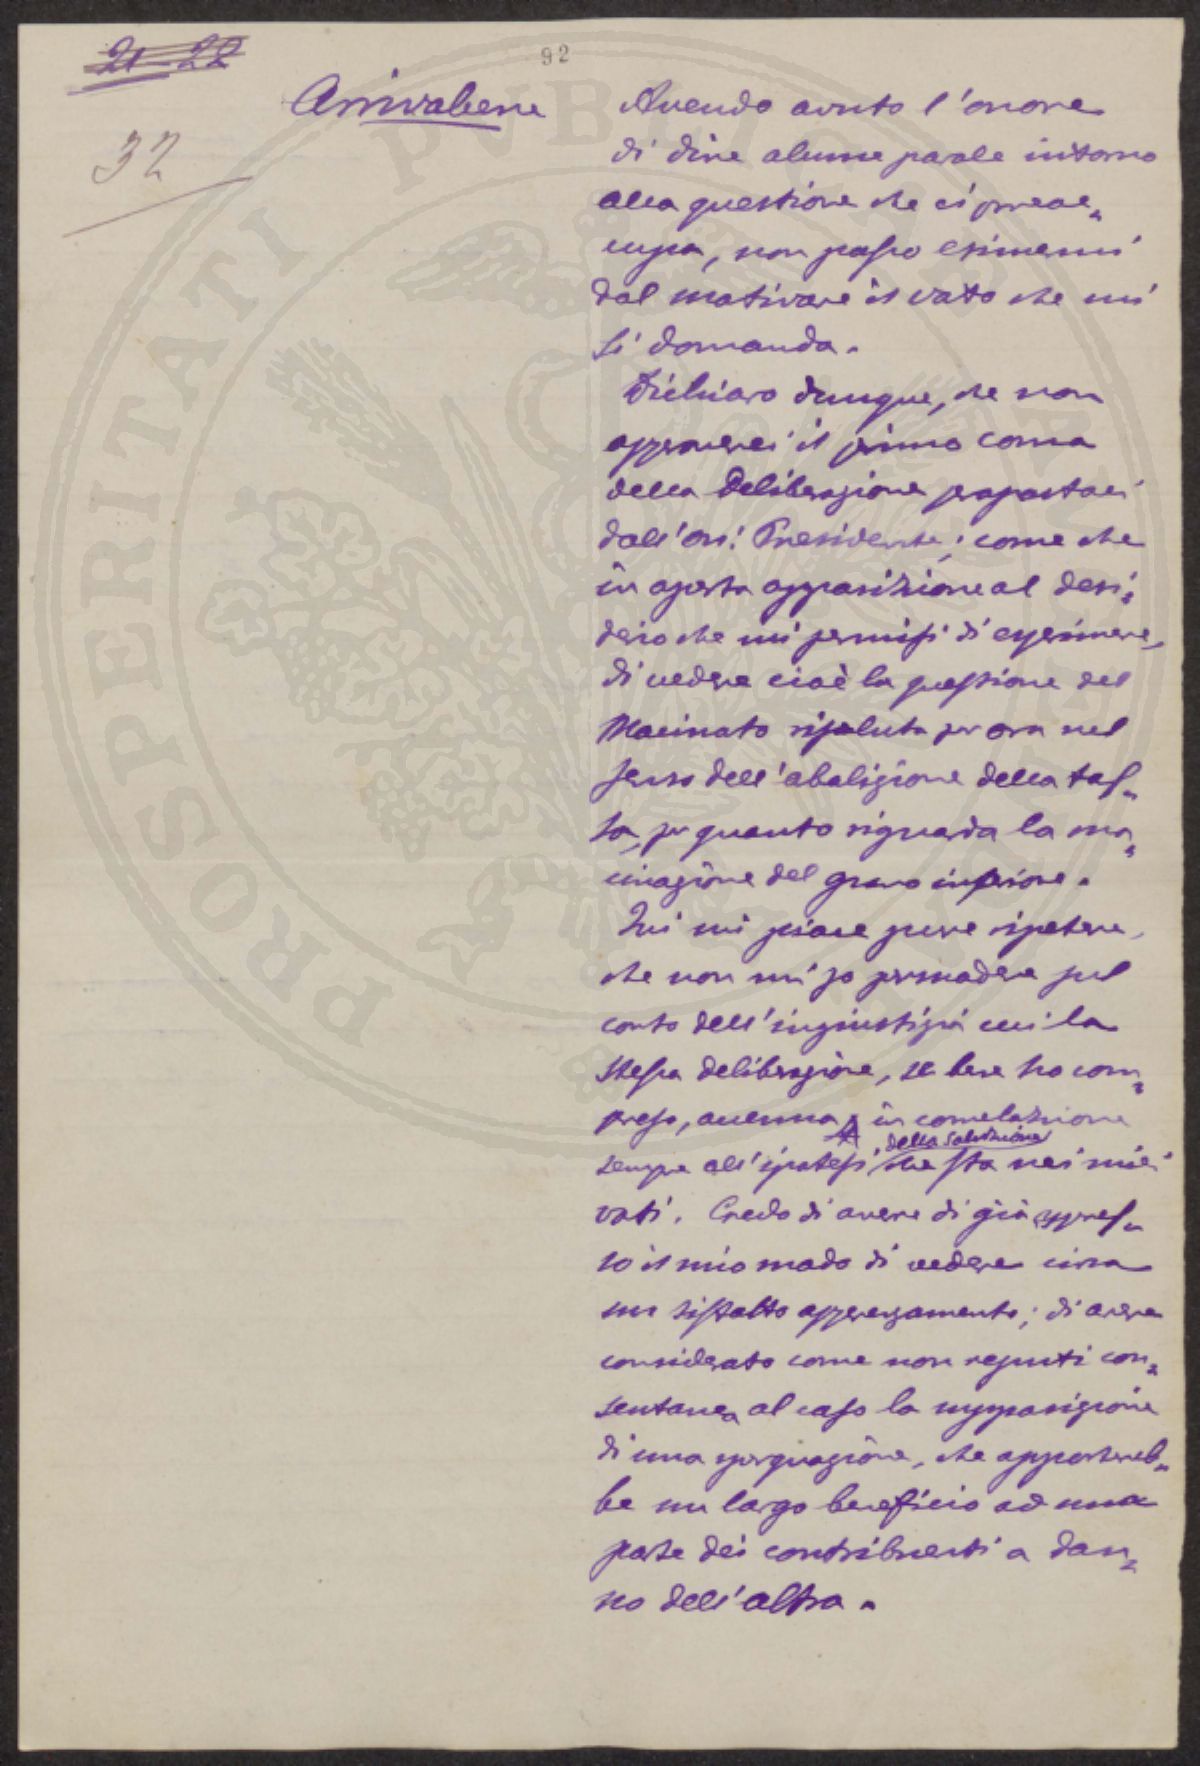 21-22
92
32
Arrivabene
Avendo avuto l'onore
di dire alcune parole intorno
alla questione che ci preoc=
cupa, non posso esimermi
dal motivare il voto che mi
si domanda.
Dichiaro dunque, che non
approverei il primo coma
della deliberazione propostaci
dall'on: Presidente; come che
in aperta opposizione al desi=
derio che mi permisi di esprimere,
di vedere cioè la questione del
Macinato risoluta per ora nel
senso dell'abolizione della tas=
sa, per quanto riguarda la ma=
cinazione del grano inferiore.
Qui mi piace pure ripetere,
che non mi so persuadere sul
conto dell'ingiustizia cui la
stessa deliberazione, se bene ho com=
preso, accenna, in correlazione
sempre all'ipotesi della soluzione che sta nei miei
voti. Credo di avere di già espres=
so il mio modo di vedere circa
un siffatto apprezzamento; di avere
considerato come non reputi con=
sentanea al caso la supposizione
di una sperquazione, che apportereb=
be un largo beneficio ad una
parte dei contribuenti a dan=
no dell'altra.
PROSPERITATI PVBLICAE